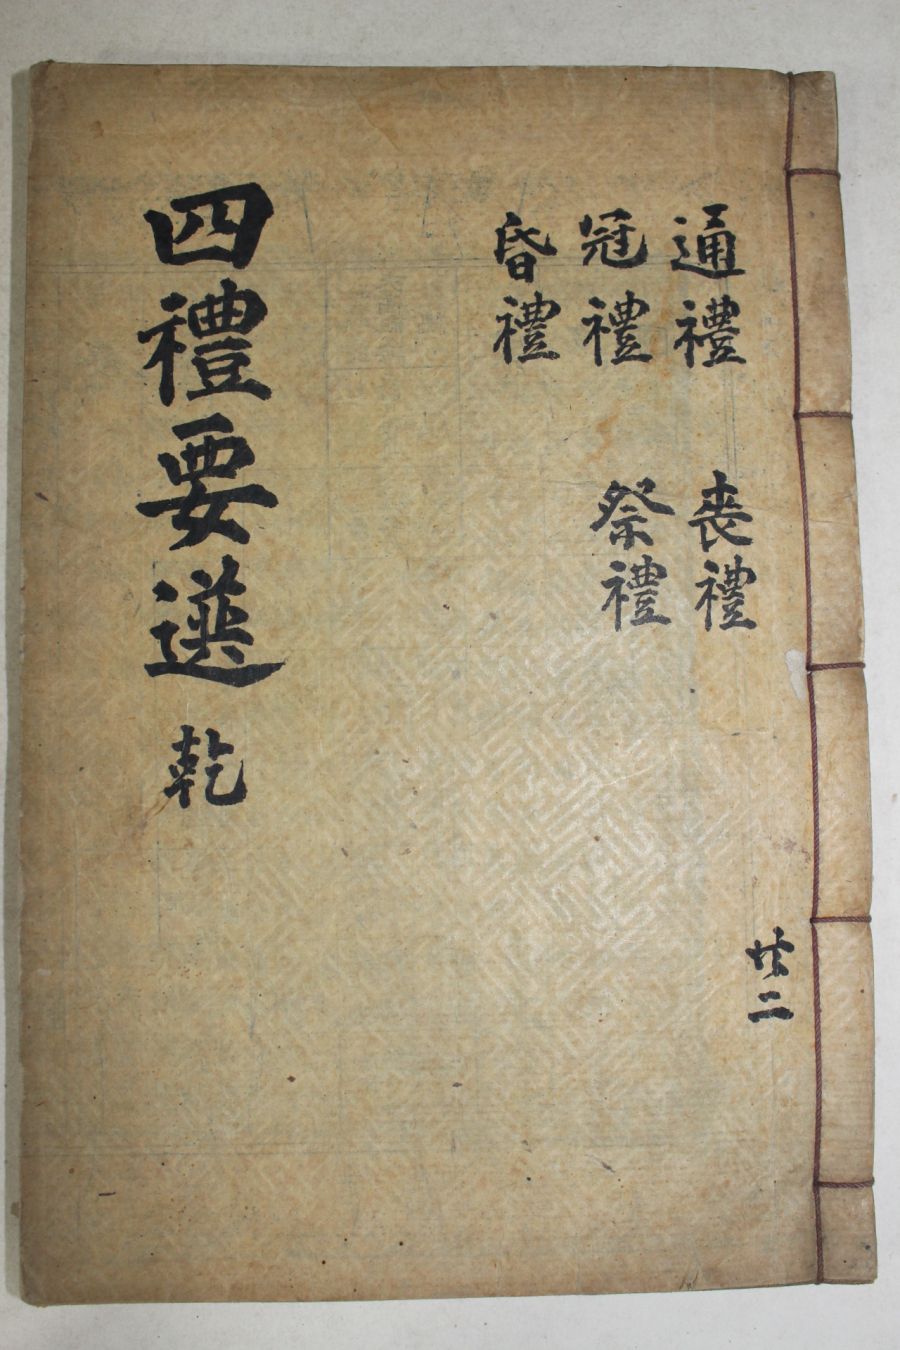 通禮
冠禮
昏禮
喪禮
祭禮
共二
四禮要選 乾